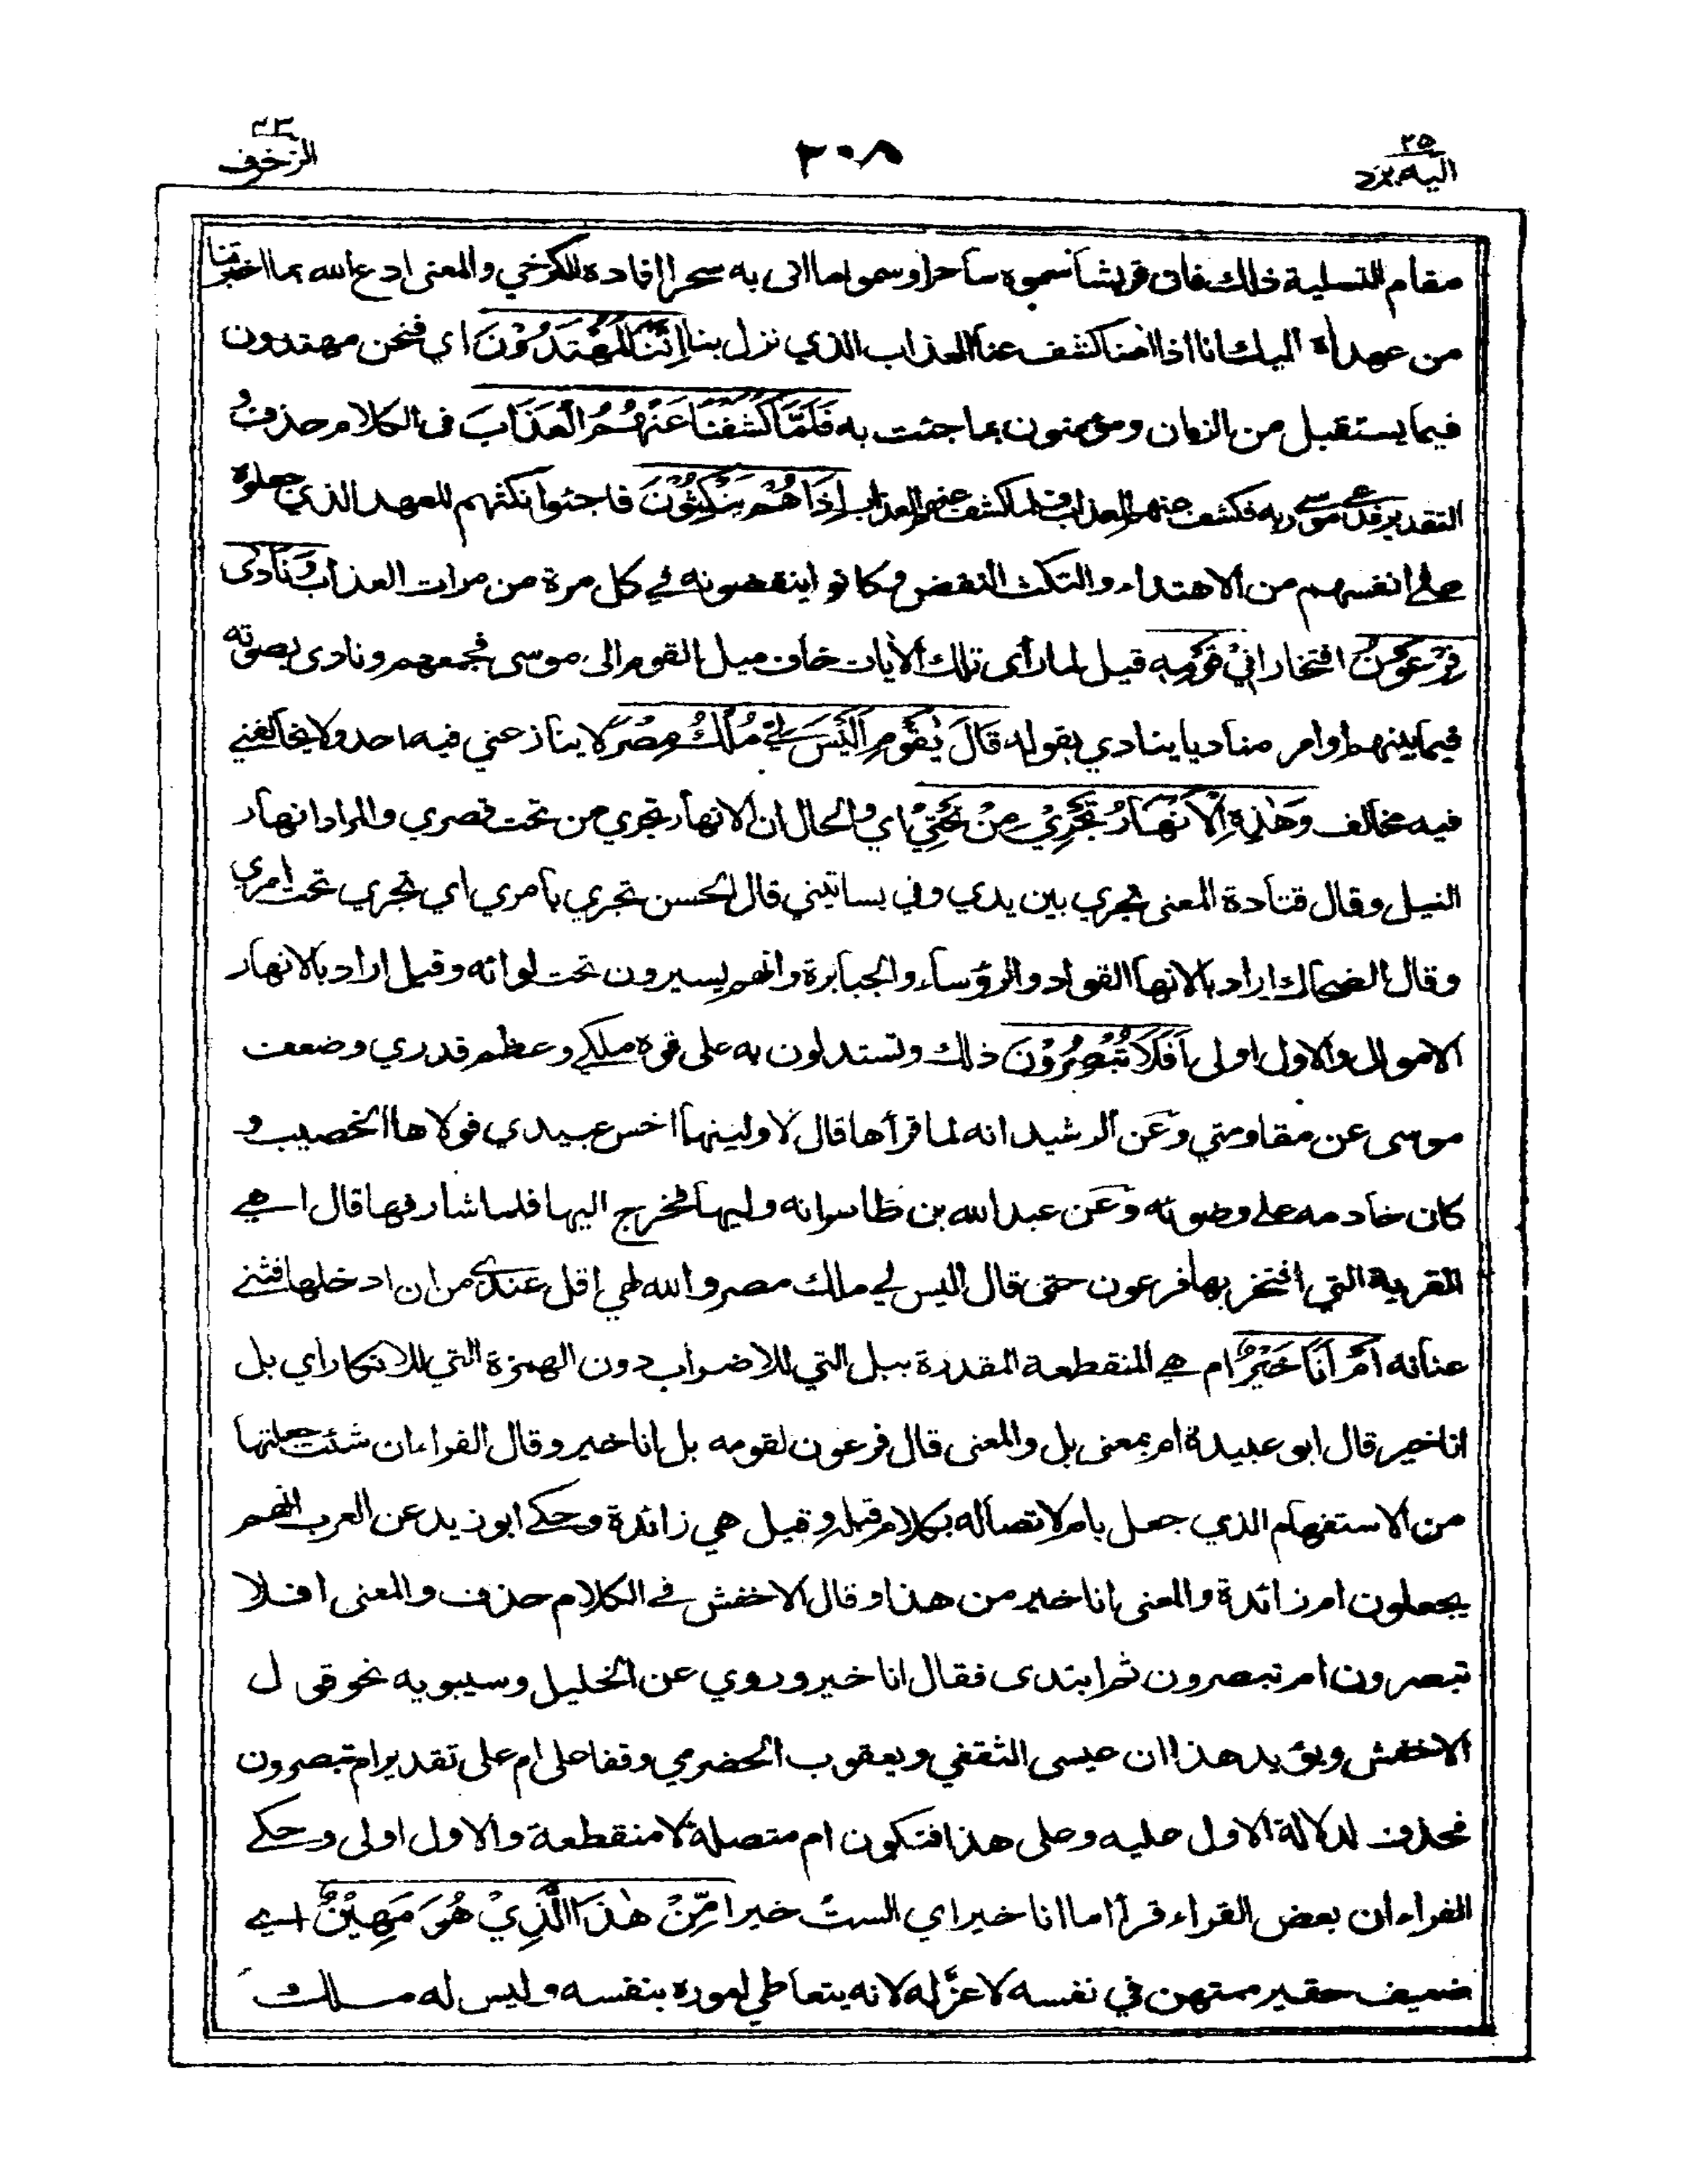 ٢٥
اليه يرد
٣٠٨
٤٣
الزخرف
مقام التسلية ذلك فان قريشا سموه ساحرا وسموا ما اتى به سحرا افاده الكرخي والمعنى ادع الله بما اخبرتنا
من عهده اليك انا اذا امنا كشف عنا العذاب الذي نزل بنا اِنَّنَا لَمُهْتَدُوْنَ اي فنحن مهتدون
فيما يستقبل من الزمان ومؤمنون بما جئت به فَلَمَّا كَشَفْنَا عَنْهُمُ الْعَذَابَ في الكلام حذف و
التقدير فدعى موسى ربه فكشف عنهم العذاب فلما كشف عنهم العذاب اِذَا هُمْ يَنْكُثُوْنَ فاجئوا نكثهم للعهد الذي جعلوه
على انفسهم من الاهتداء والنكث النقض وكانوا ينقضونه في كل مرة من مرات العذاب وَنَادٰى
فِرْعَوْنُ افتخارا فِيْ قَوْمِهٖ قيل لما رأى تلك الأيات خاف ميل القوم الى موسى فجمعهم ونادى بصوته
فيما بينهم او امر مناديا ينادي بقوله قَالَ يٰقَوْمِ اَلَيْسَ لِيْ مُلْكُ مِصْرَ لا ينازعني فيه احد ولا يخالفني
فيه مخالف وَهٰذِهِ الْاَنْهَارُ تَجْرِيْ مِنْ تَحْتِيْ اي والحال ان الانهار تجري من تحت قصري والمراد انهار
النيل وقال قتادة المعنى تجري بين يدي وفي بساتيني قال الحسن تجري بأمري اي تجري تحت امري
وقال الضحاك اراد بالانها القواد والرؤساء والجبابرة وانهم يسيرون تحت لوائه وقيل اراد بالانهار
الاموال والاول اولى اَفَلَا تُبْصِرُوْنَ ذلك وتستدلون به على قوة ملكي وعظم قدري وضعف
موسى عن مقاومتي وعن الرشيد انه لما قرأها قال لاولينها اخس عبيدي فولاها الخصيب و
كان خادمه على وضوئه وعن عبد الله بن طاهر انه وليها فخرج اليها فلما شارفها قال اهي
القرية التي افتخر بها فرعون حتى قال اليس لي ملك مصر والله لهي اقل عندي من ان ادخلها فثنى
عنانه اَمْ اَنَا خَيْرٌ ام هي المنقطعة المقدرة ببل التي للاضراب دون الهمزة التي للانكار اي بل
انا خير قال ابو عبيدة ام بمعنى بل والمعنى قال فرعون لقومه بل انا خير وقال الفراء ان شئت جعلتها
من الاستفهام الذي جعل بام لاتصاله بكلام قبله وقيل هي زائدة وحكى ابو زيد عن العرب انهم
يجعلون ام زائدة والمعنى انا خير من هذا وقال الاخفش في الكلام حذف والمعنى افلا
تبصرون ام تبصرون ثم ابتدى فقال انا خير وروي عن الخليل وسيبويه نحو قول
الاخفش ويؤيد هذا ان عيسى الثقفي ويعقوب الحضرمي وقفا على ام على تقدير ام تبصرون
فحذف لدلالة الاول عليه وعلى هذا فتكون ام متصلة لا منقطعة والاول اولى وحكى
الفراء ان بعض القراء قرأ اما انا خير اي الستُ خيرا مِّنْ هٰذَا الَّذِيْ هُوَ مَهِيْنٌ اي
ضعيف حقير ممتهن في نفسه لا عزّ له لانه يتعاطي اموره بنفسه وليس له ملك